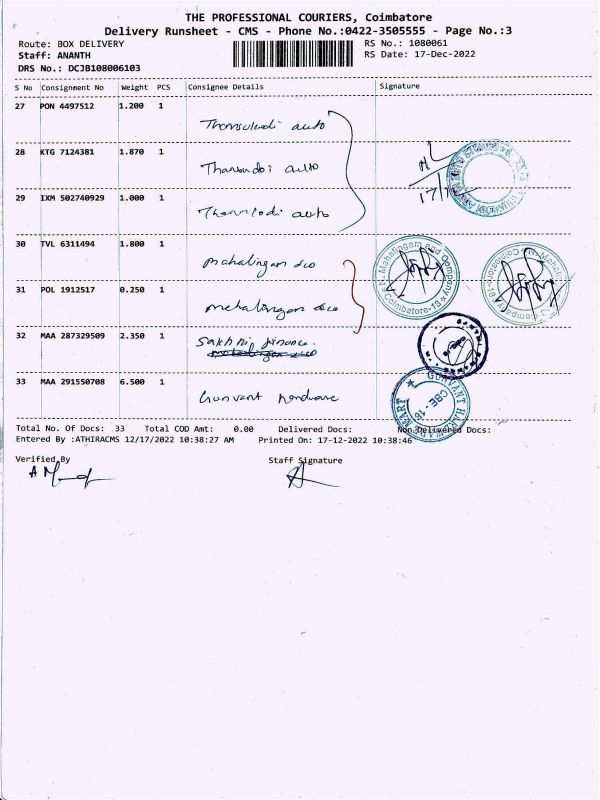 THE PROFESSIONAL COURIERS, Coimbatore
Delivery Runsheet - CMS - Phone No.:0422-3505555 - Page No.:3
Route: BOX DELIVERY RS No.: 1080061
Staff: ANANTH RS Date: 17-Dec-2022
DRS No.: DCJB108006103
S No Consignment No Weight PCS Consignee Details Signature
27 PON 4497512 1.200 1
auto
28 KTG 7124381 1.870 1
auto
17/
29 IXM 502740929 1.000 1
auto
30 TVL 6311494 1.800 1
mahalingam
N. Mahalingam and Company
Coimbatore-18
31 POL 1912517 0.250 1
mahalingam
32 MAA 287329509 2.350 1
33 MAA 291550708 6.500 1
Gunvant
GUNVANT HARDWARE MART
CBE - 18
Total No. Of Docs: 33 Total COD Amt: 0.00 Delivered Docs: Non Delivered Docs:
Entered By :ATHIRACMS 12/17/2022 10:38:27 AM Printed On: 17-12-2022 10:38:46
Verified By Staff Signature